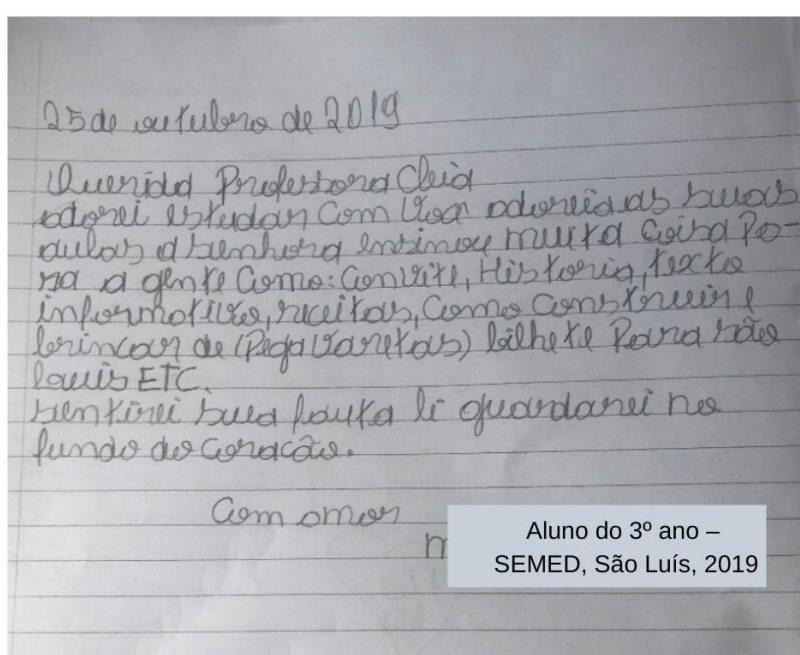 25 de outubro de 2019
Querida Professora Cleid
adorei estudar Com voa adoreia as suas
aulas a senhora ensinou muita Coisa Pa-
ra a gente Como: Convite, Historia, texto
informativo, receitas, Como Construir e
brincar de (Pega Varetas) bilhete Para são
louis ETC.
sentirei sua fauta li guardarei no
fundo do Coracão.
Com amor
Aluno do 3º ano –
SEMED, São Luís, 2019